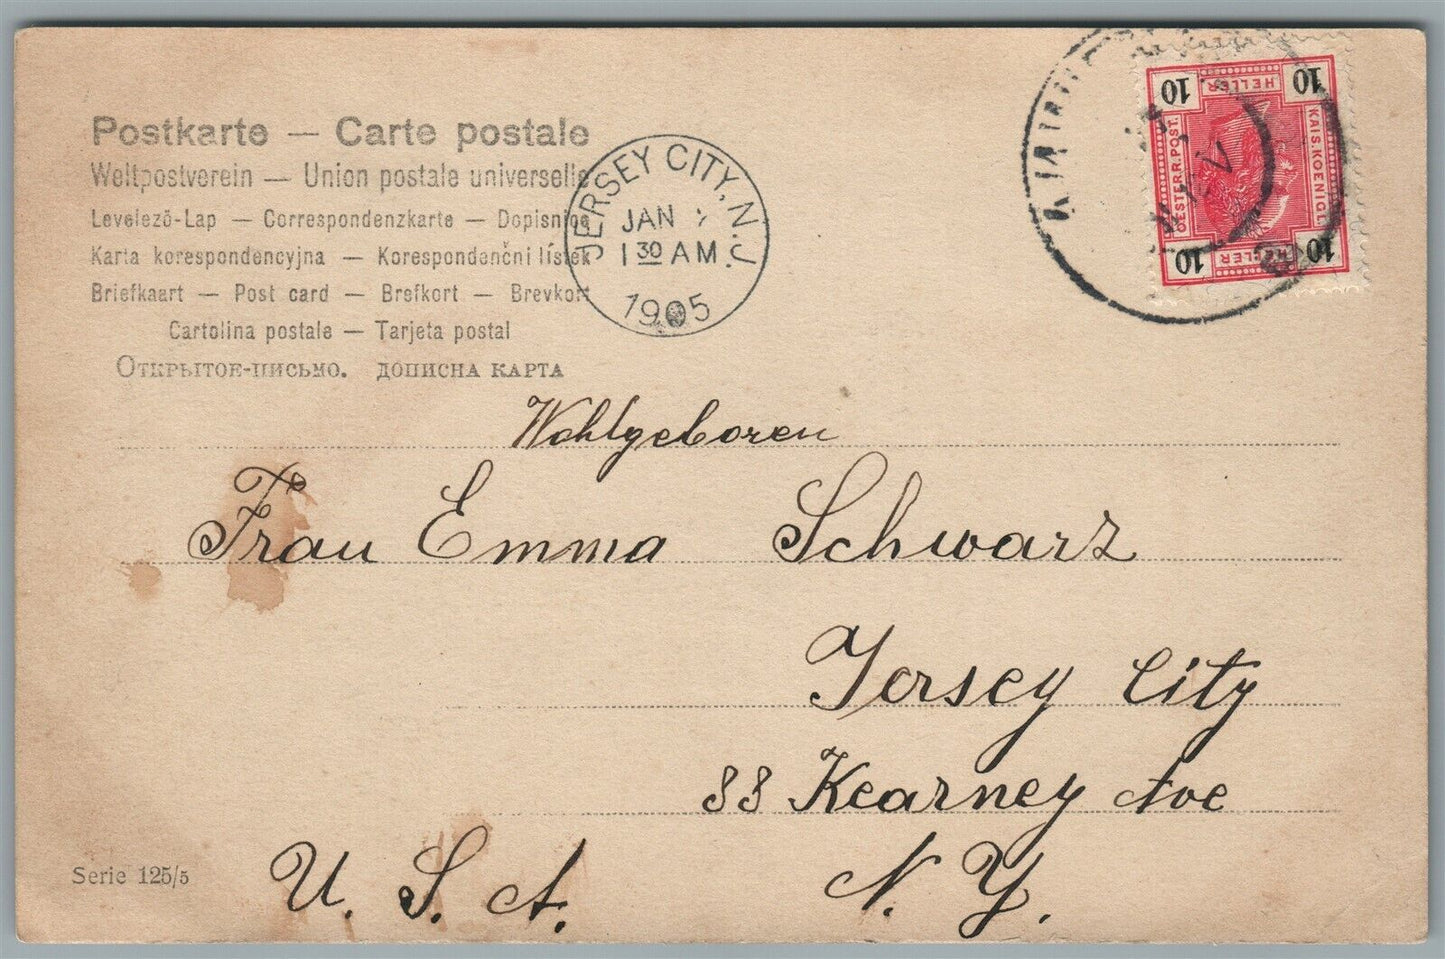 Postkarte — Carte postale
Weltpostverein — Union postale universelle
Levelező-Lap — Correspondenzkarte — Dopisnica
Karta korespondencyjna — Korespondenční lístek
Briefkaart — Post card — Brefkort — Brevkort
Cartolina postale — Tarjeta postal
Открытое-письмо. дописна карта
JERSEY CITY, N.J.
JAN
1 30 AM.
1905
10 HELLER 10
KAIS. KOENIGL.
OESTERR. POST.
10 HELLER 10
Wohlgeboren
Frau Emma Schwarz
Jersey City
88 Kearney Ave
U. S. A. N. Y.
Serie 125/5